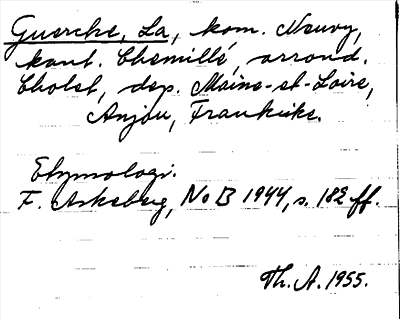 Guerche, La, kom. Neuvy,
kant. Chemillé, arrond.
Cholet, dep. Maine-et-Loire,
Anjou, Frankrike.
Etymologi.
F. Askeberg, No B 1944, s. 182 ff.
Th. A. 1955.